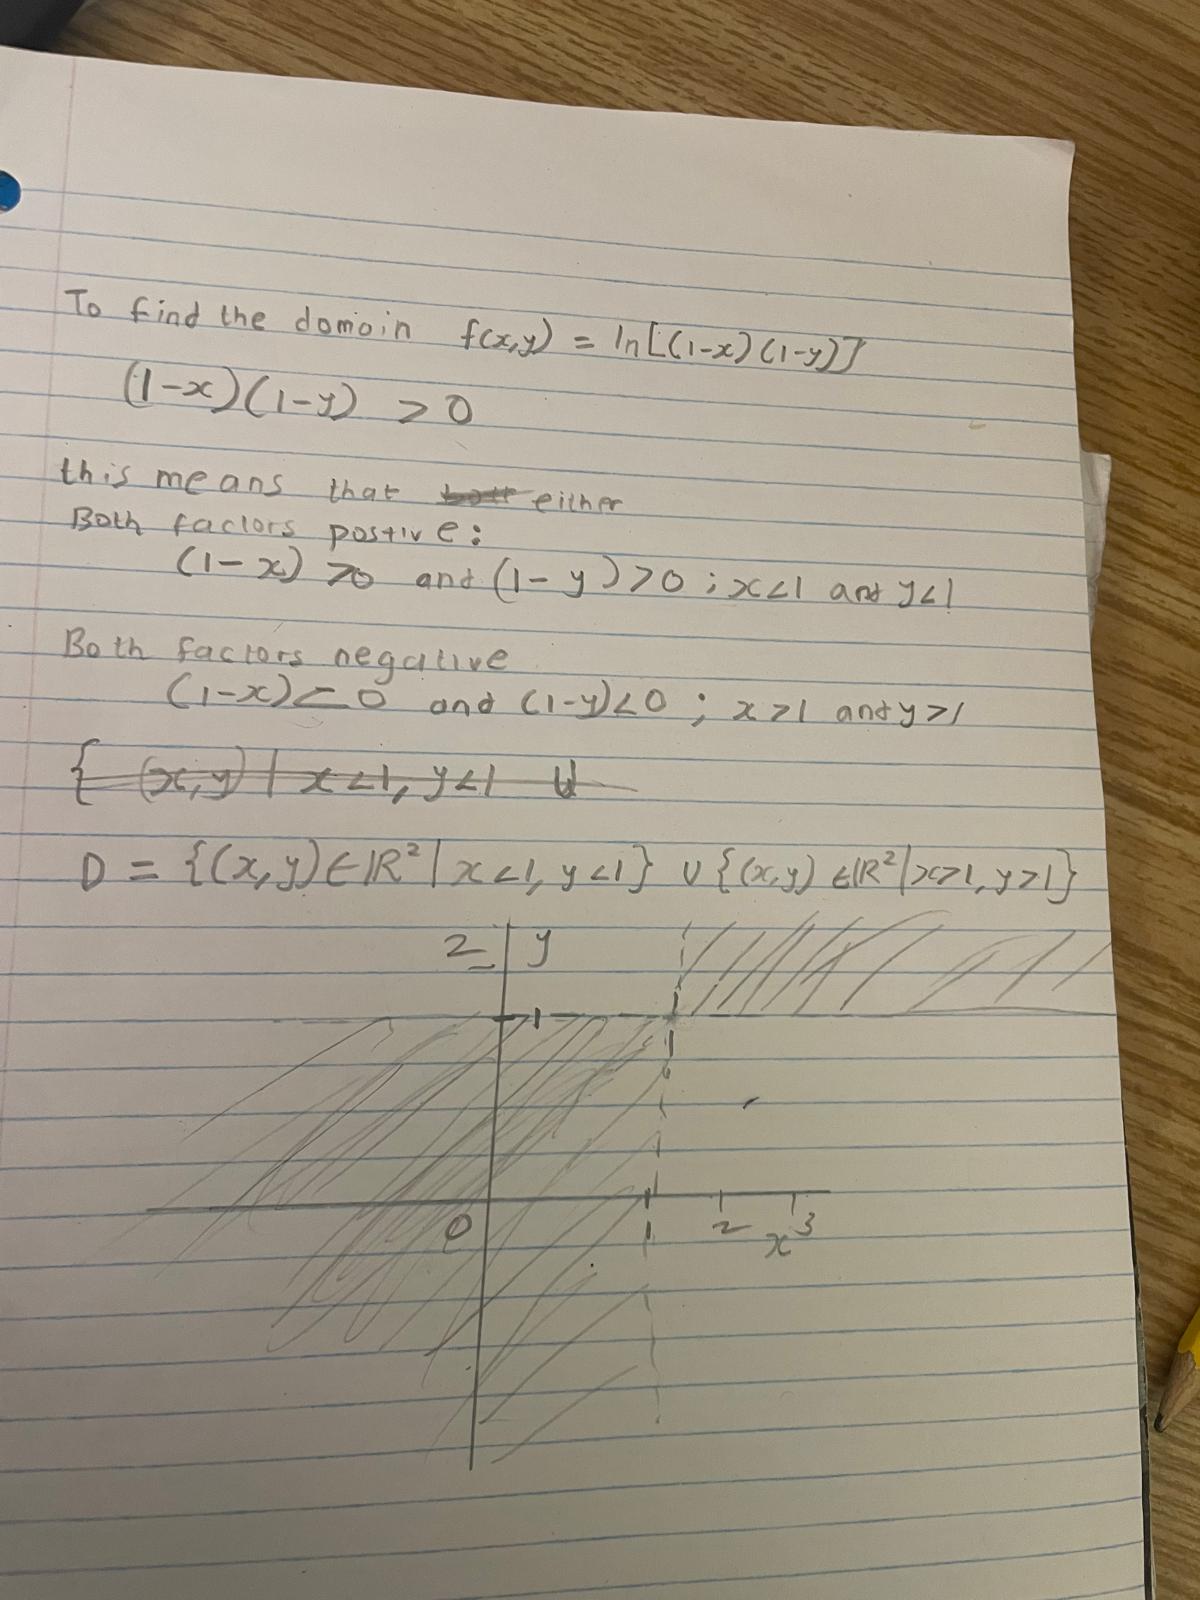 To find the domain f(x,y) = ln[(1-x)(1-y)]
(1-x)(1-y) > 0
this means that either
Both factors postive:
(1-x) >0 and (1-y)>0 ; x<1 and y<1
Both factors negative
(1-x)<0 and (1-y)<0 ; x>1 and y>1
{ (x,y) | x<1, y<1 U
D = {(x,y)∈ℝ² | x<1, y<1} ∪ {(x,y) ∈ℝ² | x>1, y>1}
2 y
1
0 1 2 3
x